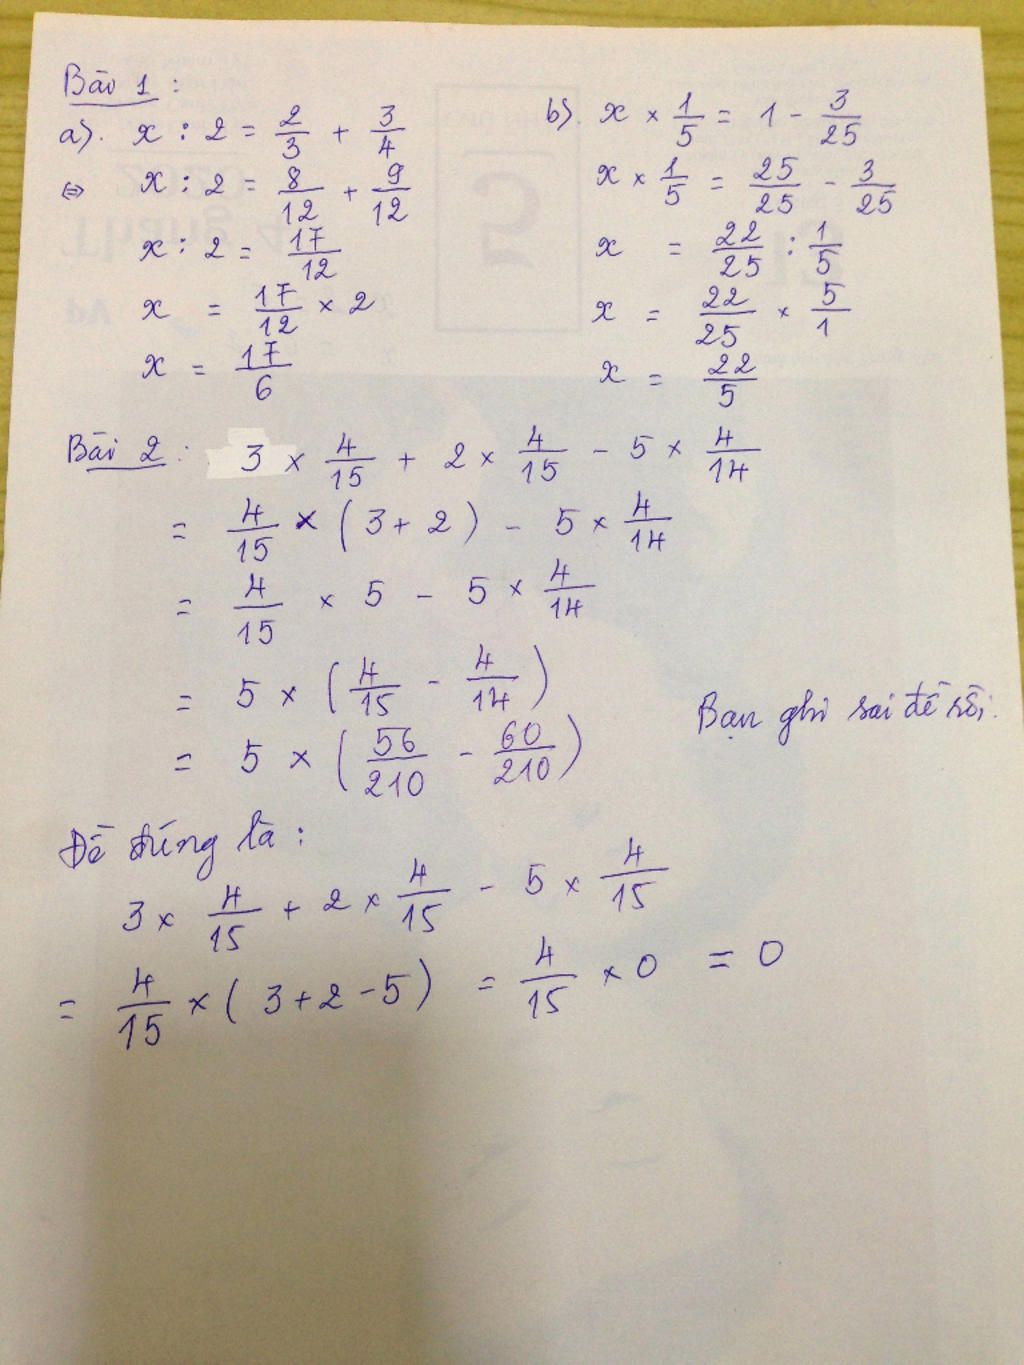 Bài 1 :
a). x : 2 = 2/3 + 3/4
⇔ x : 2 = 8/12 + 9/12
x : 2 = 17/12
x = 17/12 × 2
x = 17/6
b). x × 1/5 = 1 - 3/25
x × 1/5 = 25/25 - 3/25
x = 22/25 : 1/5
x = 22/25 × 5/1
x = 22/5
Bài 2 : 3 × 4/15 + 2 × 4/15 - 5 × 4/14
= 4/15 × ( 3 + 2 ) - 5 × 4/14
= 4/15 × 5 - 5 × 4/14
= 5 × ( 4/15 - 4/14 )
= 5 × ( 56/210 - 60/210 )
Bạn ghi sai đề rồi.
Đề đúng là :
3 × 4/15 + 2 × 4/15 - 5 × 4/15
= 4/15 × ( 3 + 2 - 5 ) = 4/15 × 0 = 0